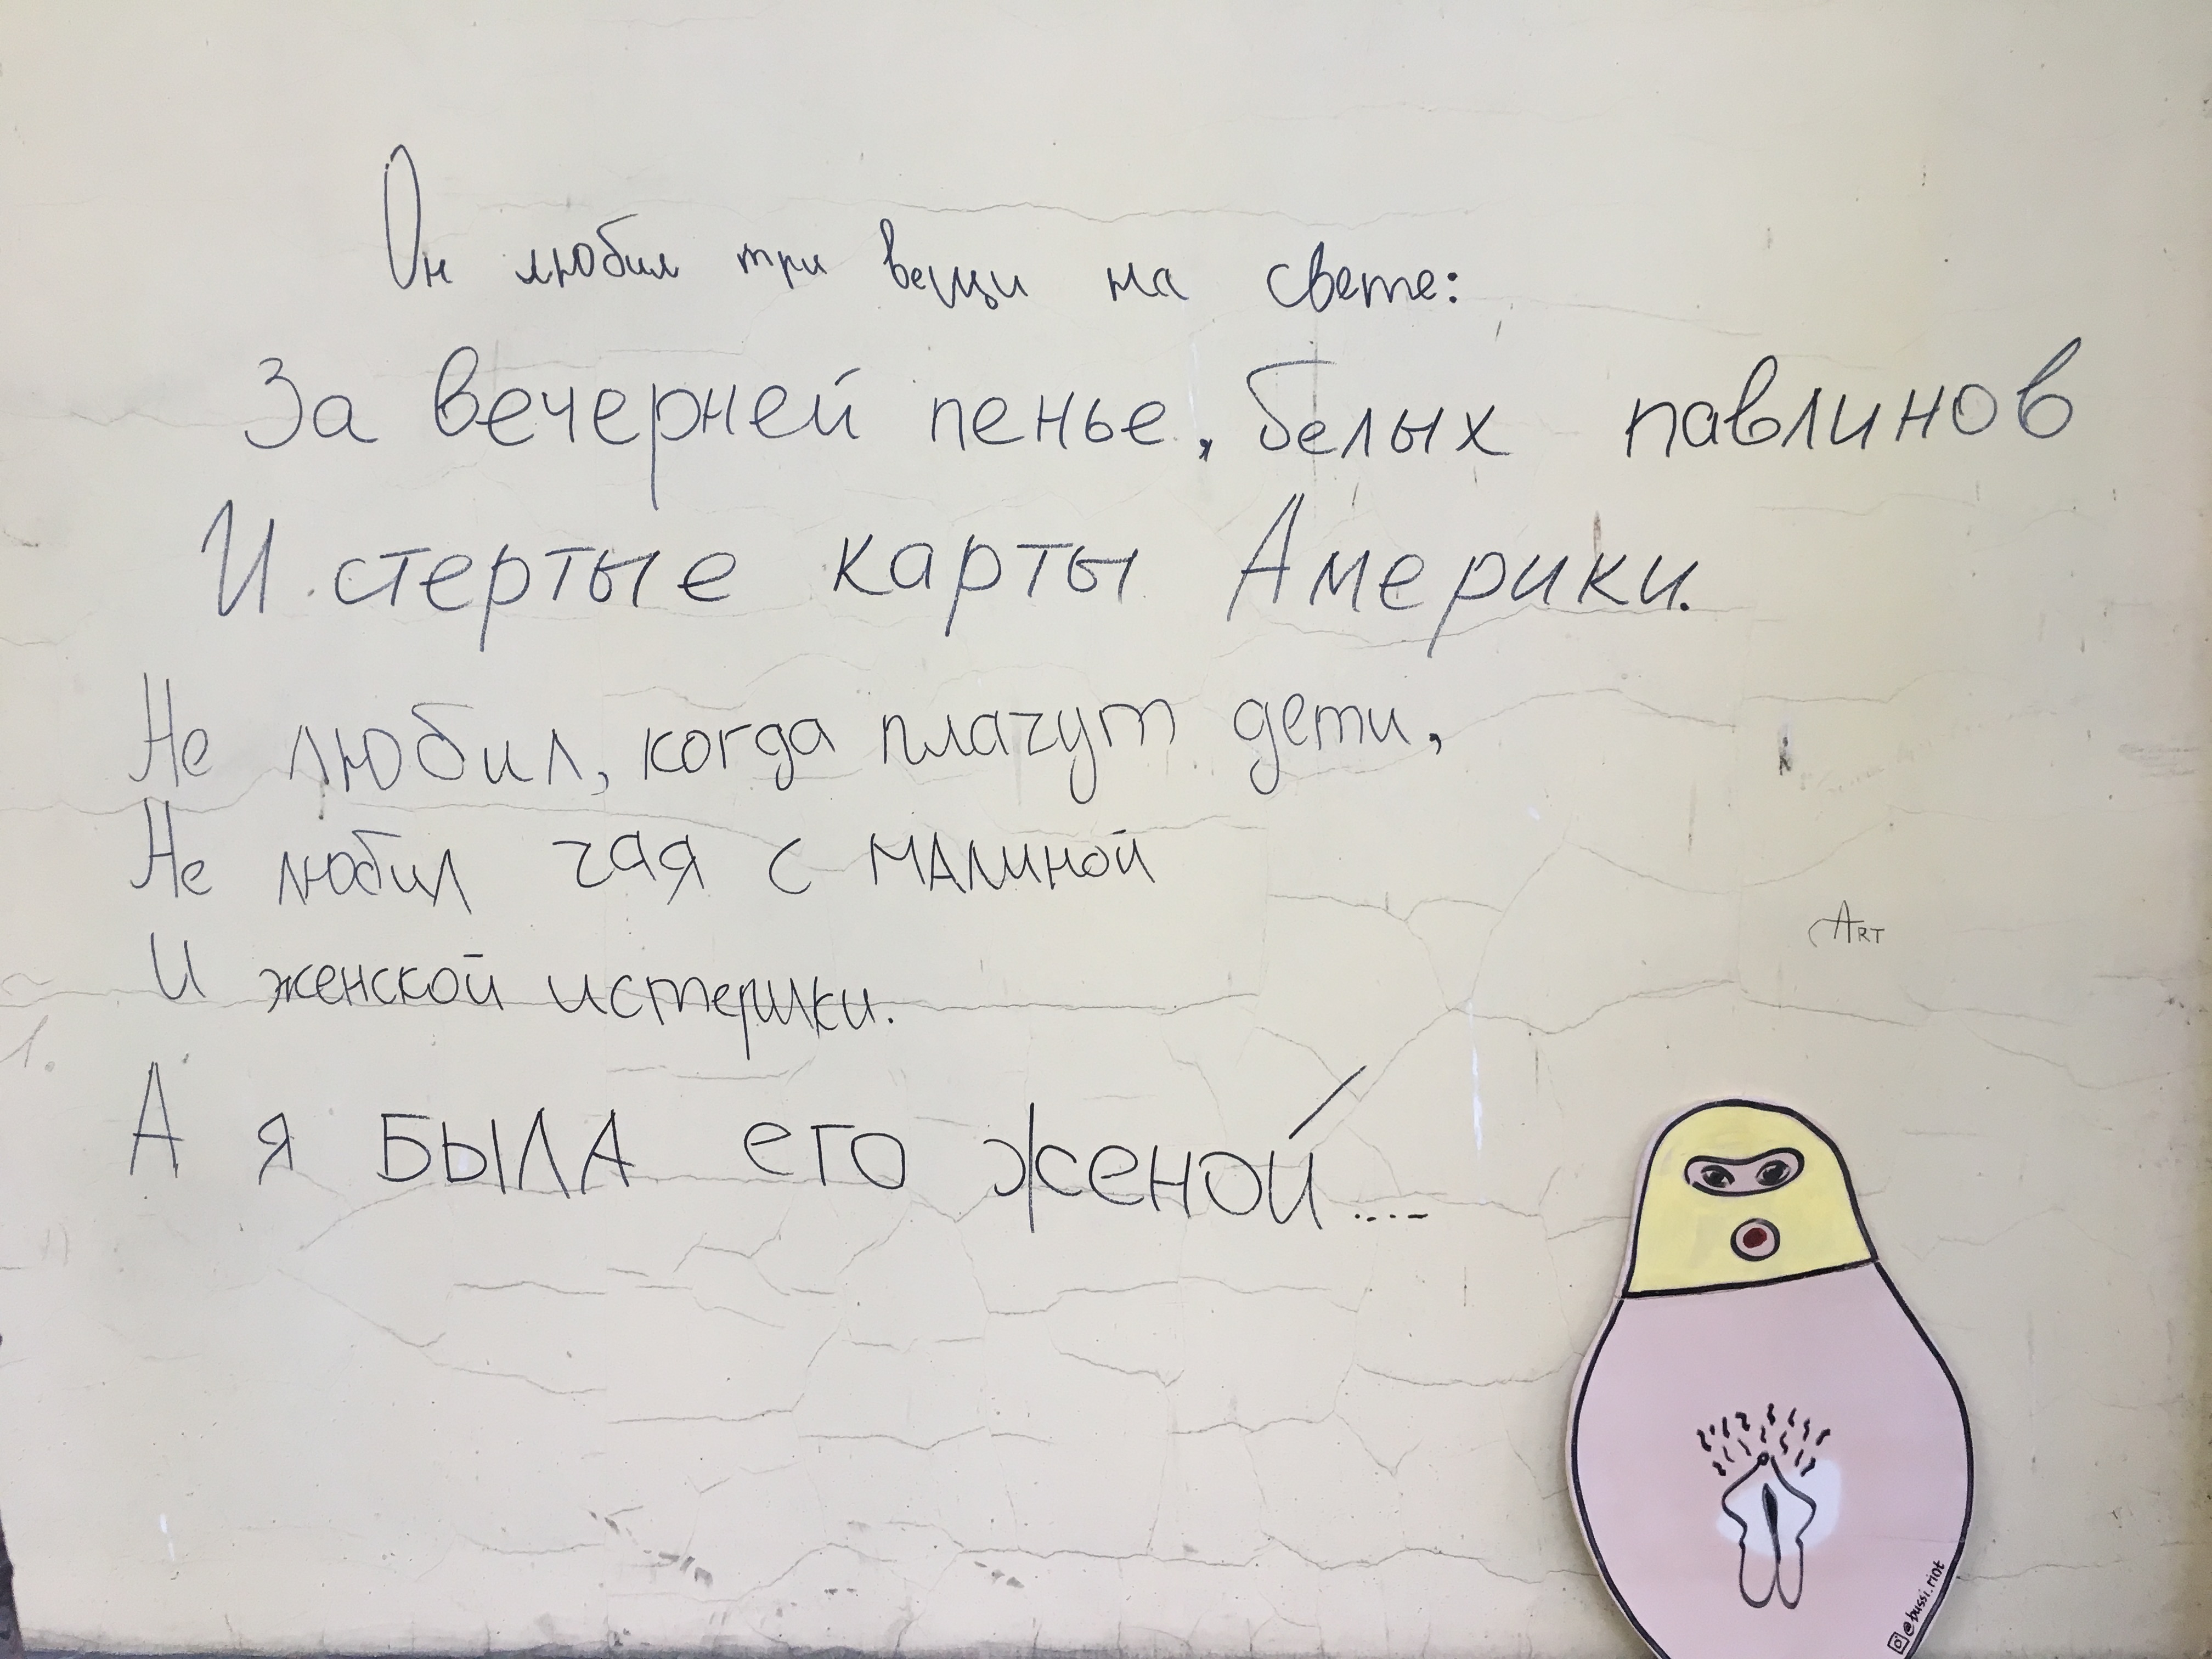 Он любил три вещи на свете:
За вечерней пенье, белых павлинов
И стертые карты Америки.
Не любил, когда плачут дети,
Не любил чая с малиной
И женской истерики.
А я БЫЛА его женой....
ART
1.
@bussi.riot